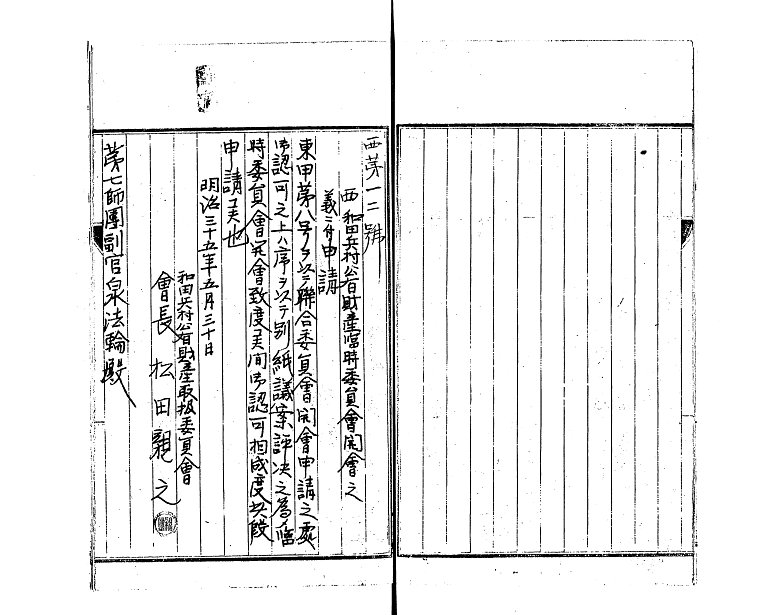 西第一二號
西和田兵村公有財産臨時委員會開會之
義ニ付申請
東甲第八号ヲ以テ聯合委員會開會申請之處
御認可之上ハ序ヲ以テ別紙議案評决之為臨
時委員會開會致度候間御認可相成度此段
申請候也
明治三十五年五月三十日
和田兵村公有財産取扱委員會
會長 松田親之
第七師團副官泉法輪殿